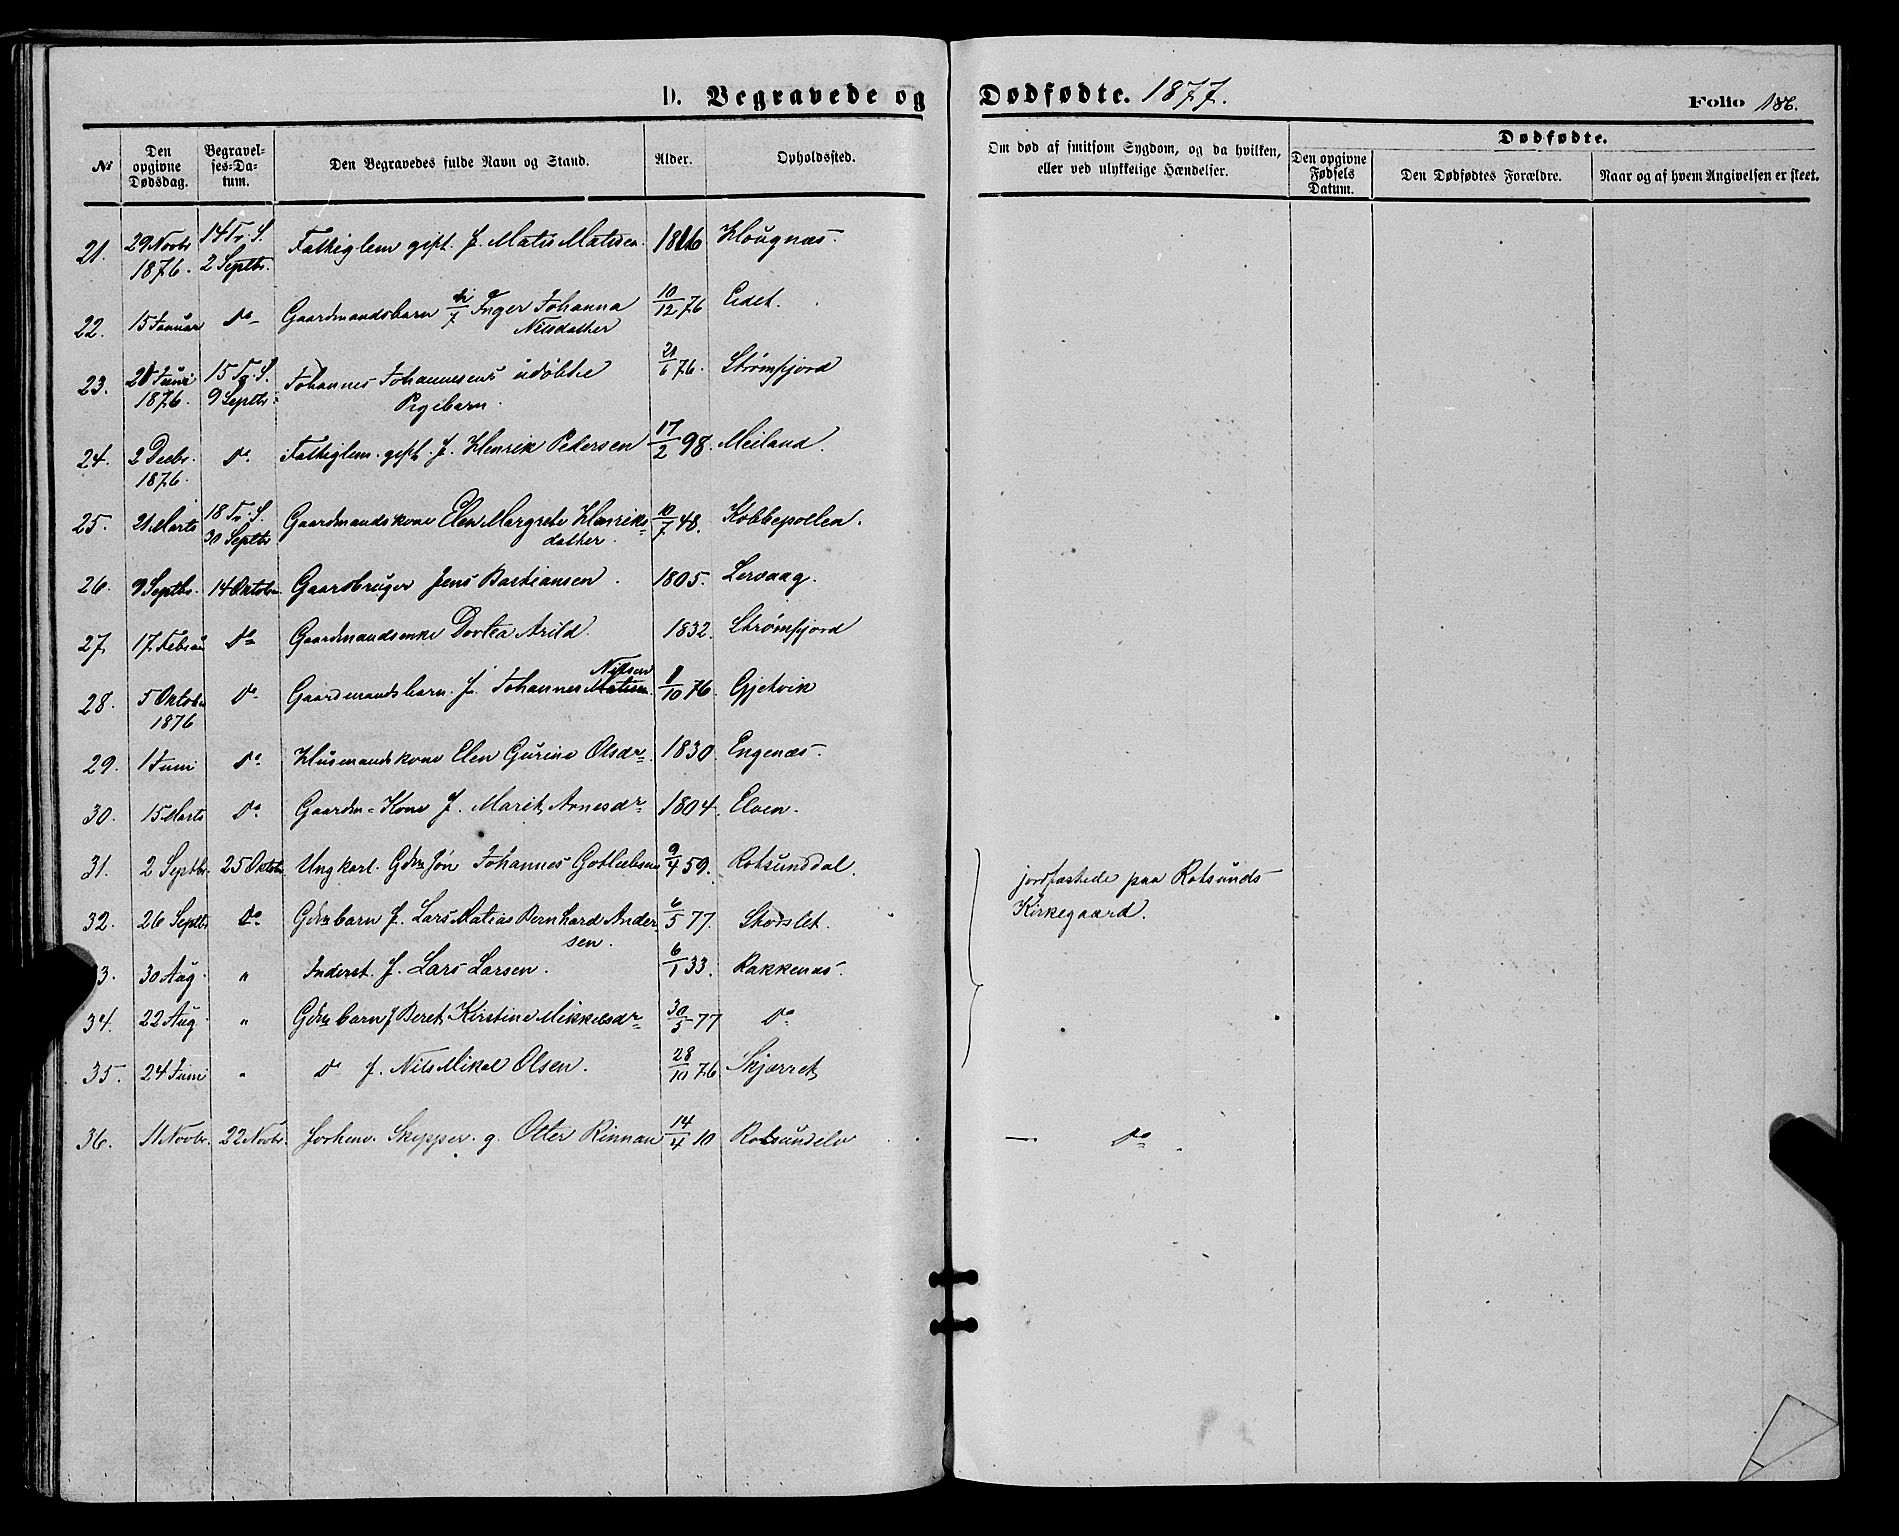 D. Begravede og Dødfødte. 1877. Folio 186.
No
Den opgivne Dødsdag.
Begravelses-Datum.
Den Begravedes fulde Navn og Stand.
Alder.
Opholdsted.
Om død af smitsom Sygdom, og da hvilken, eller ved ulykkelige Hændelser.
Dødfødte.
Den opgivne Fødsels Datum.
Den Dødfødtes Forældre.
Naar og af hvem Angivelsen er skeet.
21. 29 Novbr 14 Tr. S. Fattiglem gift. f. Matis Matisen. 1816 Hougnæs.
1876. 2 Septbr.
22. 15 Januar do Gaardmandsbarn Inger Johanna 10/12 76 Eidet.
Nilsdatter
23. 20 Juni 15 Tr. S. Johannes Johannesens udøbte 20/6 76. Strømfjord
1876. 9 Septbr. Pigebarn.
24. 2 Decbr. do. Fattiglem. gift. f. Henrik Pedersen 17/2 98. Meiland.
1876.
25. 21 Marts 18 Tr. S. Gaardmandskone Elen Margrete Henriks- 10/7 48. Kobbepollen.
30 Septbr datter.
26. 9 Septbr. 14 Oktober Gaardbruger Jens Bastiansen. 1805. Lervaag.
27. 17 Februar do Gaardmandsenke Dortea Arild. 1832. Strømfjord
Nilsen
28. 5 Oktober do. Gaardmandsbarn. f. Johannes 8/10 76. Gjetvik
1876
29. 1 Juni do. Husmandskone Elen Gurine Olsdr 1830. Engenæs.
30. 15 Marts do. Gaardm. Kone f. Marit Arnesdr 1804. Elven.
31. 2 Septbr. 25 Oktobr Ungkarl. Gdm Søn Johannes Gotliebsen 9/4 59. Rotsunddal.
jordfæstede paa Rotsunds
32. 26 Septbr do. Gdm barn f. Lars Matias Bernhard Ander- 6/5 77. Skodslet.
Kirkegaard.
sen.
33. 30 Aug. " Inderst. f. Lars Larsen. 6/1 33. Rakkenæs.
34. 22 Aug. " Gdm barn f Beret Kirstine Mikkelsdr 30/5 77 do
35. 24 Juni " do f. Nils Mikal Olsen. 28/10 76 Skjærret
36. 11 Novbr. 22 Novbr. Forhenv. Skipper. g. Otter Rinnan 14/4 10 Rotsundelv — do